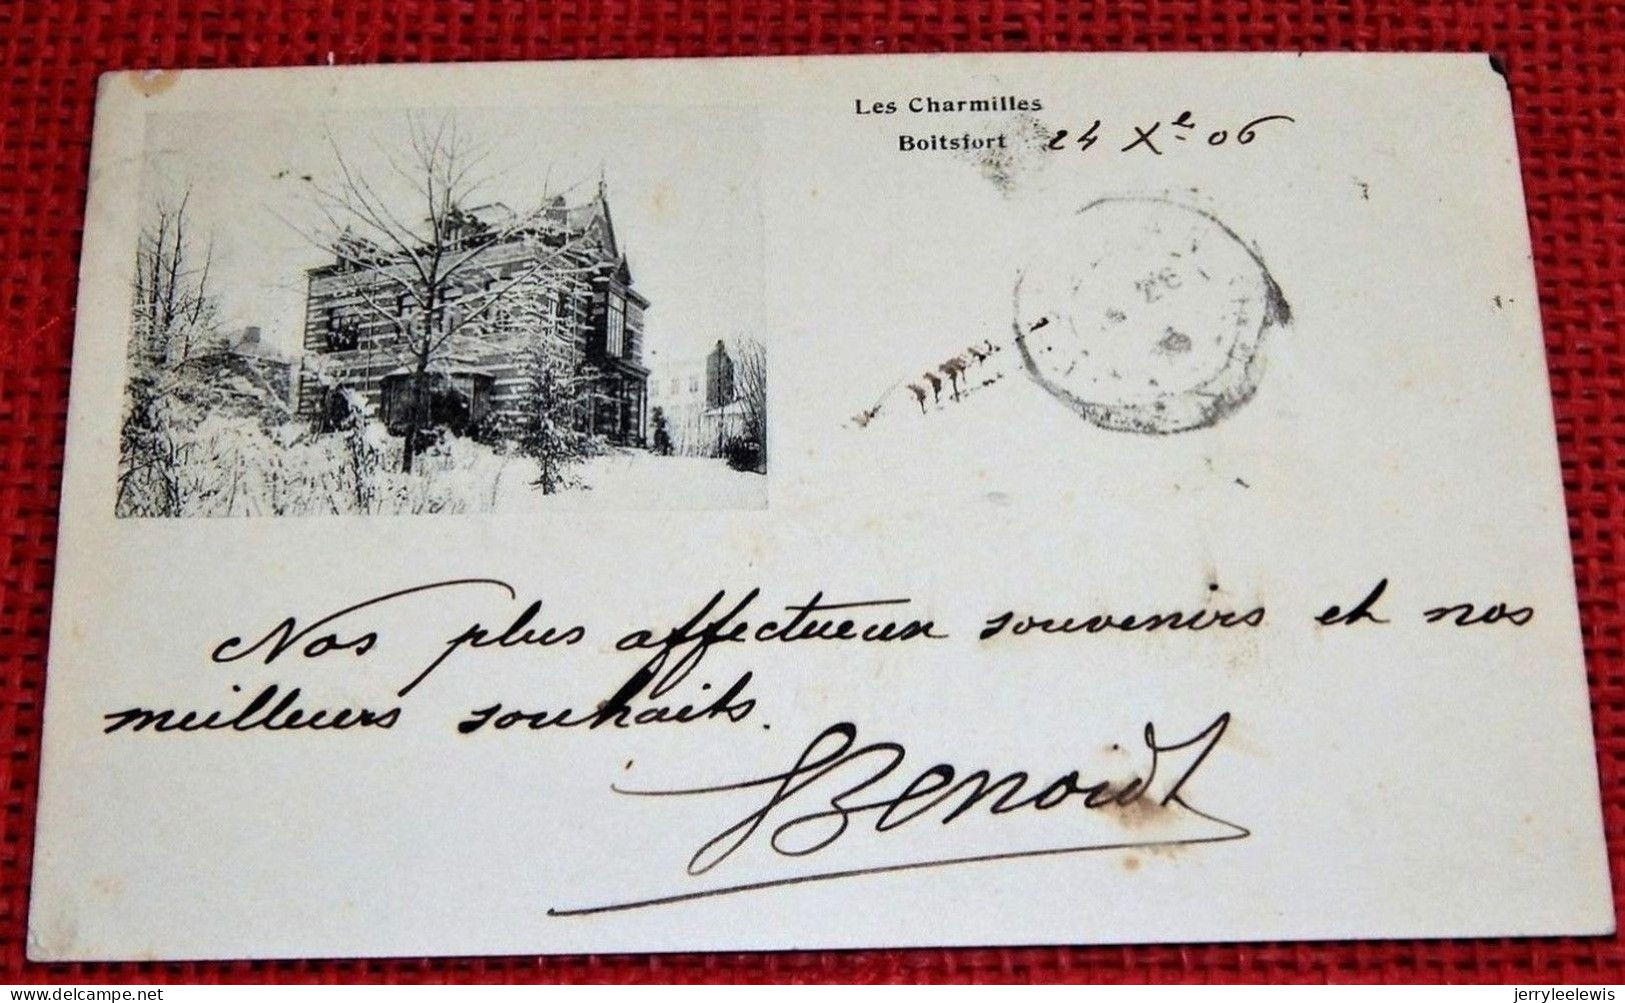 Les Charmilles
Boitsfort 24 Xe 06
Nos plus affectueux souvenirs et nos
meilleurs souhaits.
Benoidt
delcampe.net
jerryleelewis